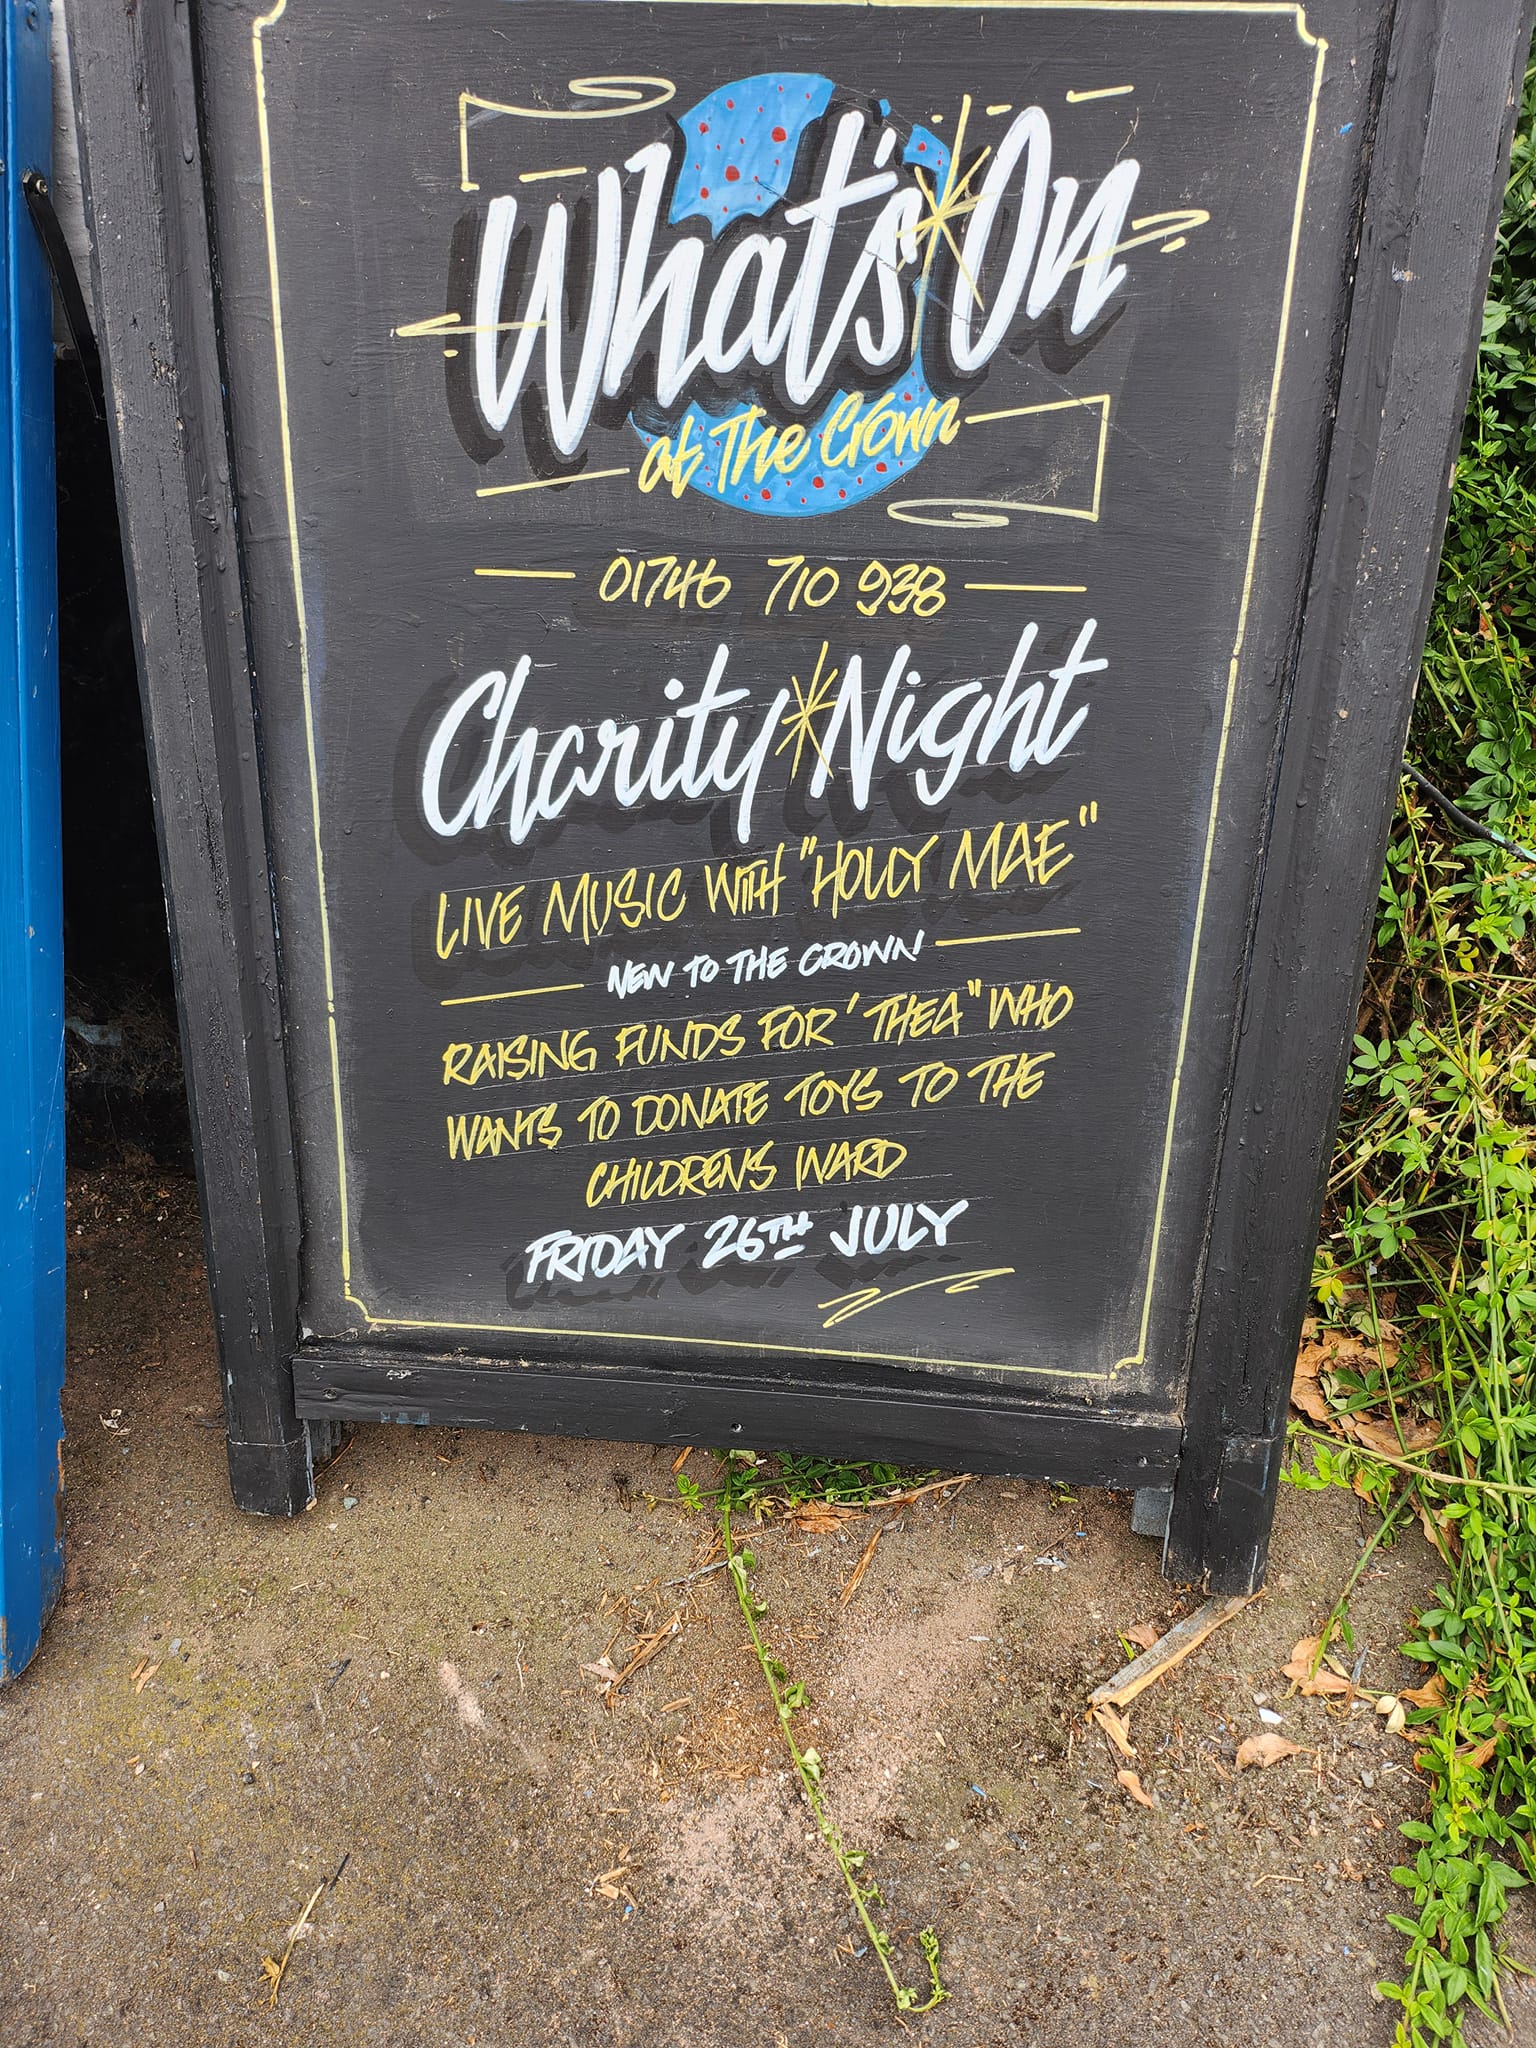 What's On
at The Crown
01746 710 938
Charity Night
LIVE MUSIC WITH "HOLLY MAE"
NEW TO THE CROWN!
RAISING FUNDS FOR 'THEA" WHO
WANTS TO DONATE TOYS TO THE
CHILDRENS WARD
FRIDAY 26TH JULY